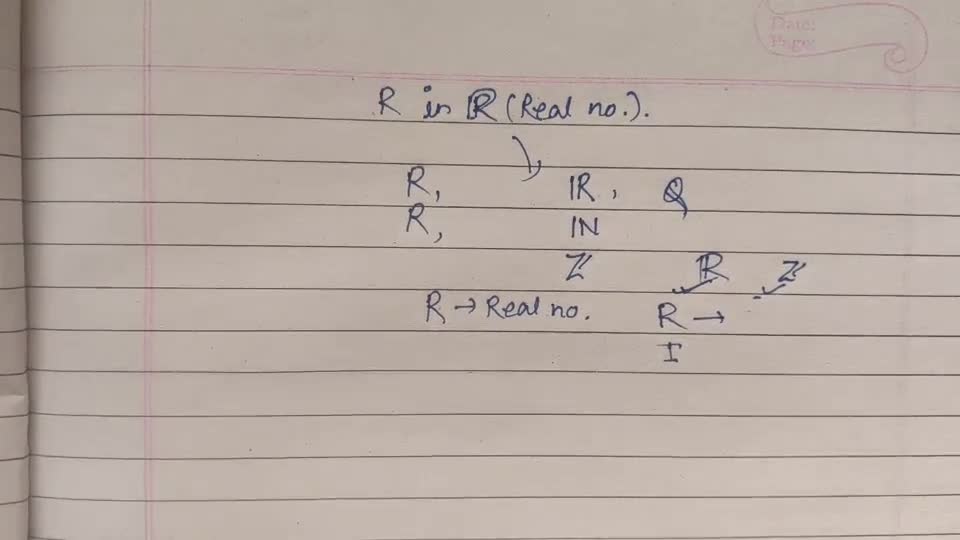 Date:
Page:
R in ℝ (Real no.).
R, ℝ, Q
R, ℕ
ℤ ℝ ℤ
R → Real no. R →
I